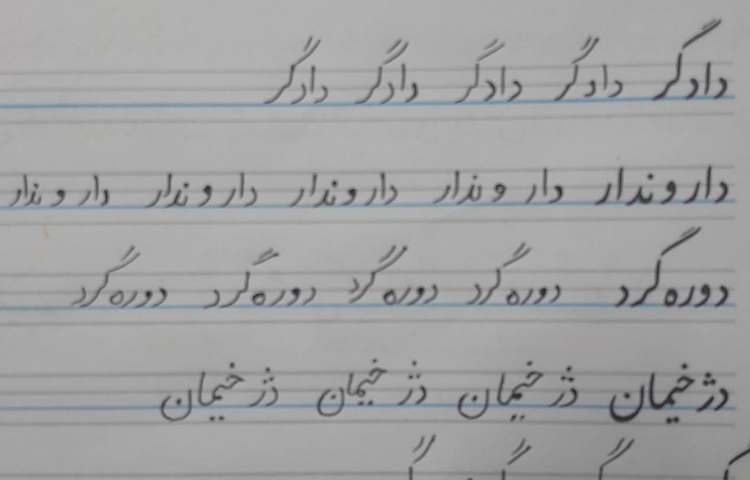 دادگر دادگر دادگر دادگر دادگر
دار و ندار دار و ندار دار و ندار دار و ندار دار و ندار
دوره گرد دوره گرد دوره گرد دوره گرد دوره گرد
دژخیمان دژخیمان دژخیمان دژخیمان